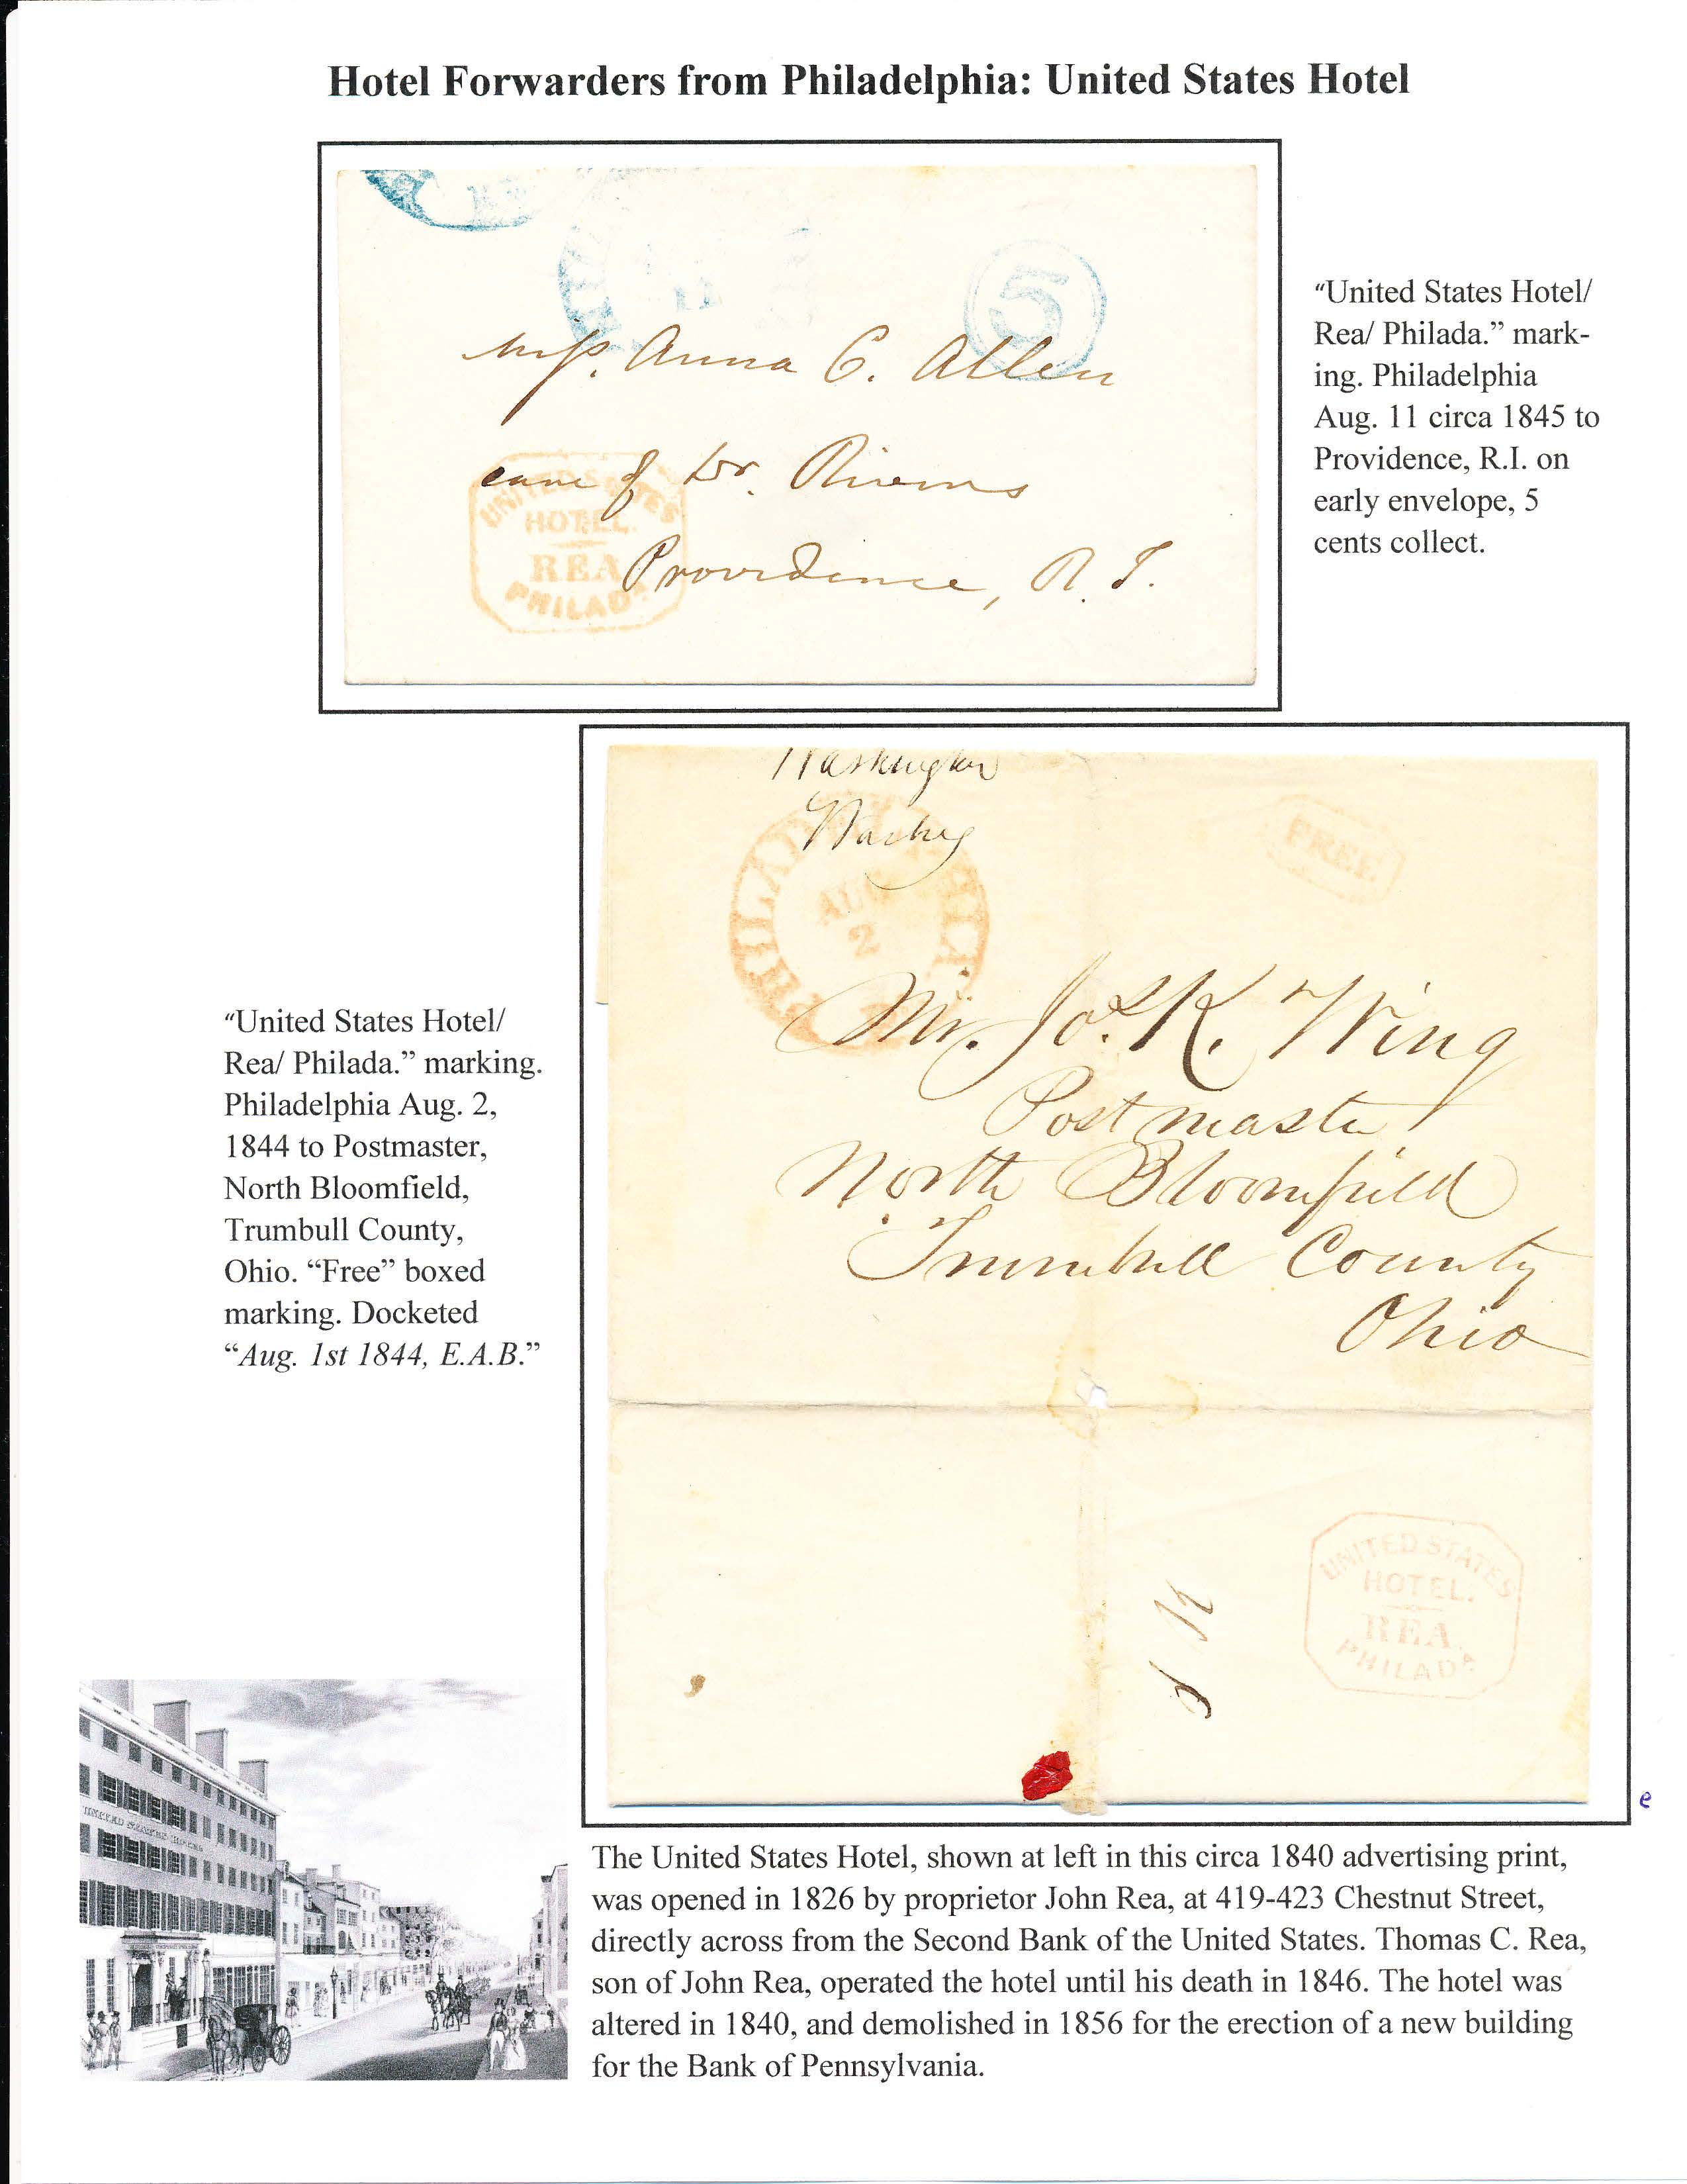 Hotel Forwarders from Philadelphia: United States Hotel
5
11
Miss. Anna C. Allen
care of Dr.
Providence, R.I.
UNITED STATES
HOTEL.
REA
PHILADA
“United States Hotel/
Rea/ Philada.” mark-
ing. Philadelphia
Aug. 11 circa 1845 to
Providence, R.I. on
early envelope, 5
cents collect.
Washington
PHILADELPHIA
AUG
2
FREE
Mr. Jos. K. Wing
Postmaster
North Bloomfield
Trumbull County
Ohio
UNITED STATES
HOTEL.
REA
PHILADA
“United States Hotel/
Rea/ Philada.” marking.
Philadelphia Aug. 2,
1844 to Postmaster,
North Bloomfield,
Trumbull County,
Ohio. “Free” boxed
marking. Docketed
“Aug. 1st 1844, E.A.B.”
UNITED STATES HOTEL
e
The United States Hotel, shown at left in this circa 1840 advertising print,
was opened in 1826 by proprietor John Rea, at 419-423 Chestnut Street,
directly across from the Second Bank of the United States. Thomas C. Rea,
son of John Rea, operated the hotel until his death in 1846. The hotel was
altered in 1840, and demolished in 1856 for the erection of a new building
for the Bank of Pennsylvania.